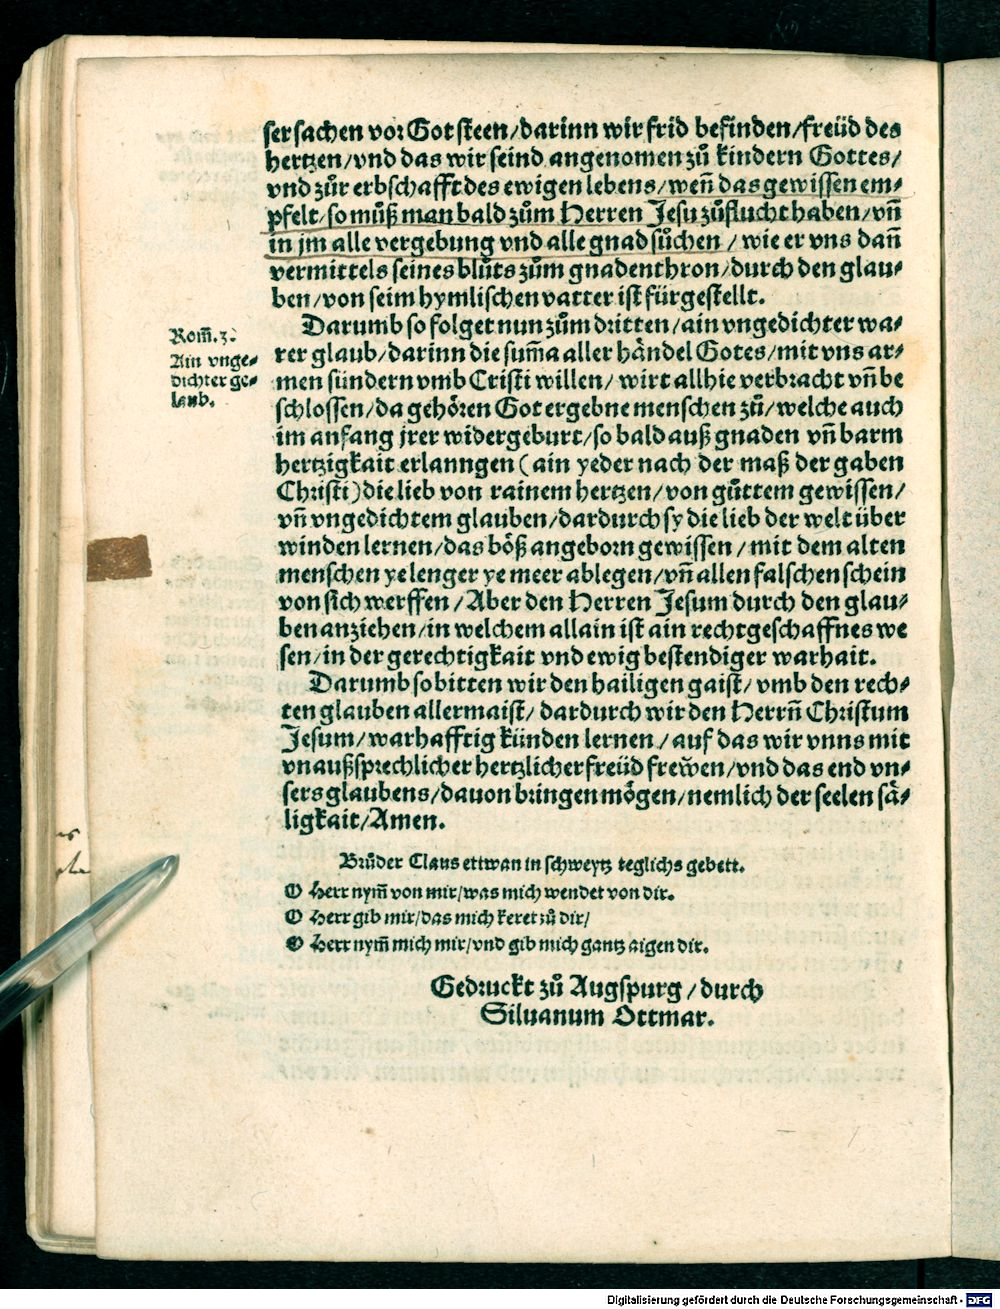 ser sachen vor Got steen/darinn wir frid befinden/freüd des
hertzen/vnd das wir seind angenomen zů kindern Gottes/
vnd zůr erbschafft des ewigen lebens/weñ das gewissen em⸗
pfelt/so můß man bald zům Herren Jesu zůflucht haben/vñ
in jm alle vergebung vnd alle gnad sůchen/wie er vns dañ
vermittels seines blůts zům gnadenthron/durch den glau⸗
ben/von seim hymlischen vatter ist fürgestellt.
Darumb so folget nun zům dritten/ain vngedichter wa⸗
rer glaub/darinn die sum̃a aller håndel Gotes/mit vns ar⸗
men sündern vmb Cristi willen/wirt allhie verbracht vñ be
schlossen/da gehören Got ergebne menschen zů/welche auch
im anfang jrer widergeburt/so bald auß gnaden vñ barm
hertzigkait erlanngen (ain yeder nach der maß der gaben
Christi) die lieb von rainem hertzen/von gůttem gewissen/
vñ vngedichtem glauben/dardurch sy die lieb der welt über
winden lernen/das bôß angeborn gewissen/mit dem alten
menschen ye lenger ye meer ablegen/vñ allen falschen schein
von sich werffen/Aber den Herren Jesum durch den glau⸗
ben anziehen/in welchem allain ist ain rechtgeschaffnes we
sen/in der gerechtigkait vnd ewig bestendiger warhait.
Darumb so bitten wir den hailigen gaist/vmb den rech⸗
ten glauben allermaist/dardurch wir den Herrñ Christum
Jesum/warhafftig künden lernen/auf das wir vnns mit
vnaußsprechlicher hertzlicher freüd frewen/vnd das end vn⸗
sers glaubens/dauon bringen mögen/nemlich der seelen så⸗
ligkait/Amen.
Rom̃.3.
Ain vnge⸗
dichter ge⸗
laub.
Brůder Claus ettwan in schweytz teglichs gebett.
O Herr nym̃ von mir/was mich wendet von dir.
O Herr gib mir/das mich keret zů dir/
O Herr nym̃ mich mir/vnd gib mich gantz aigen dir.
Gedruckt zů Augspurg/durch
Siluanum Ottmar.
Digitalisierung gefördert durch die Deutsche Forschungsgemeinschaft - DFG